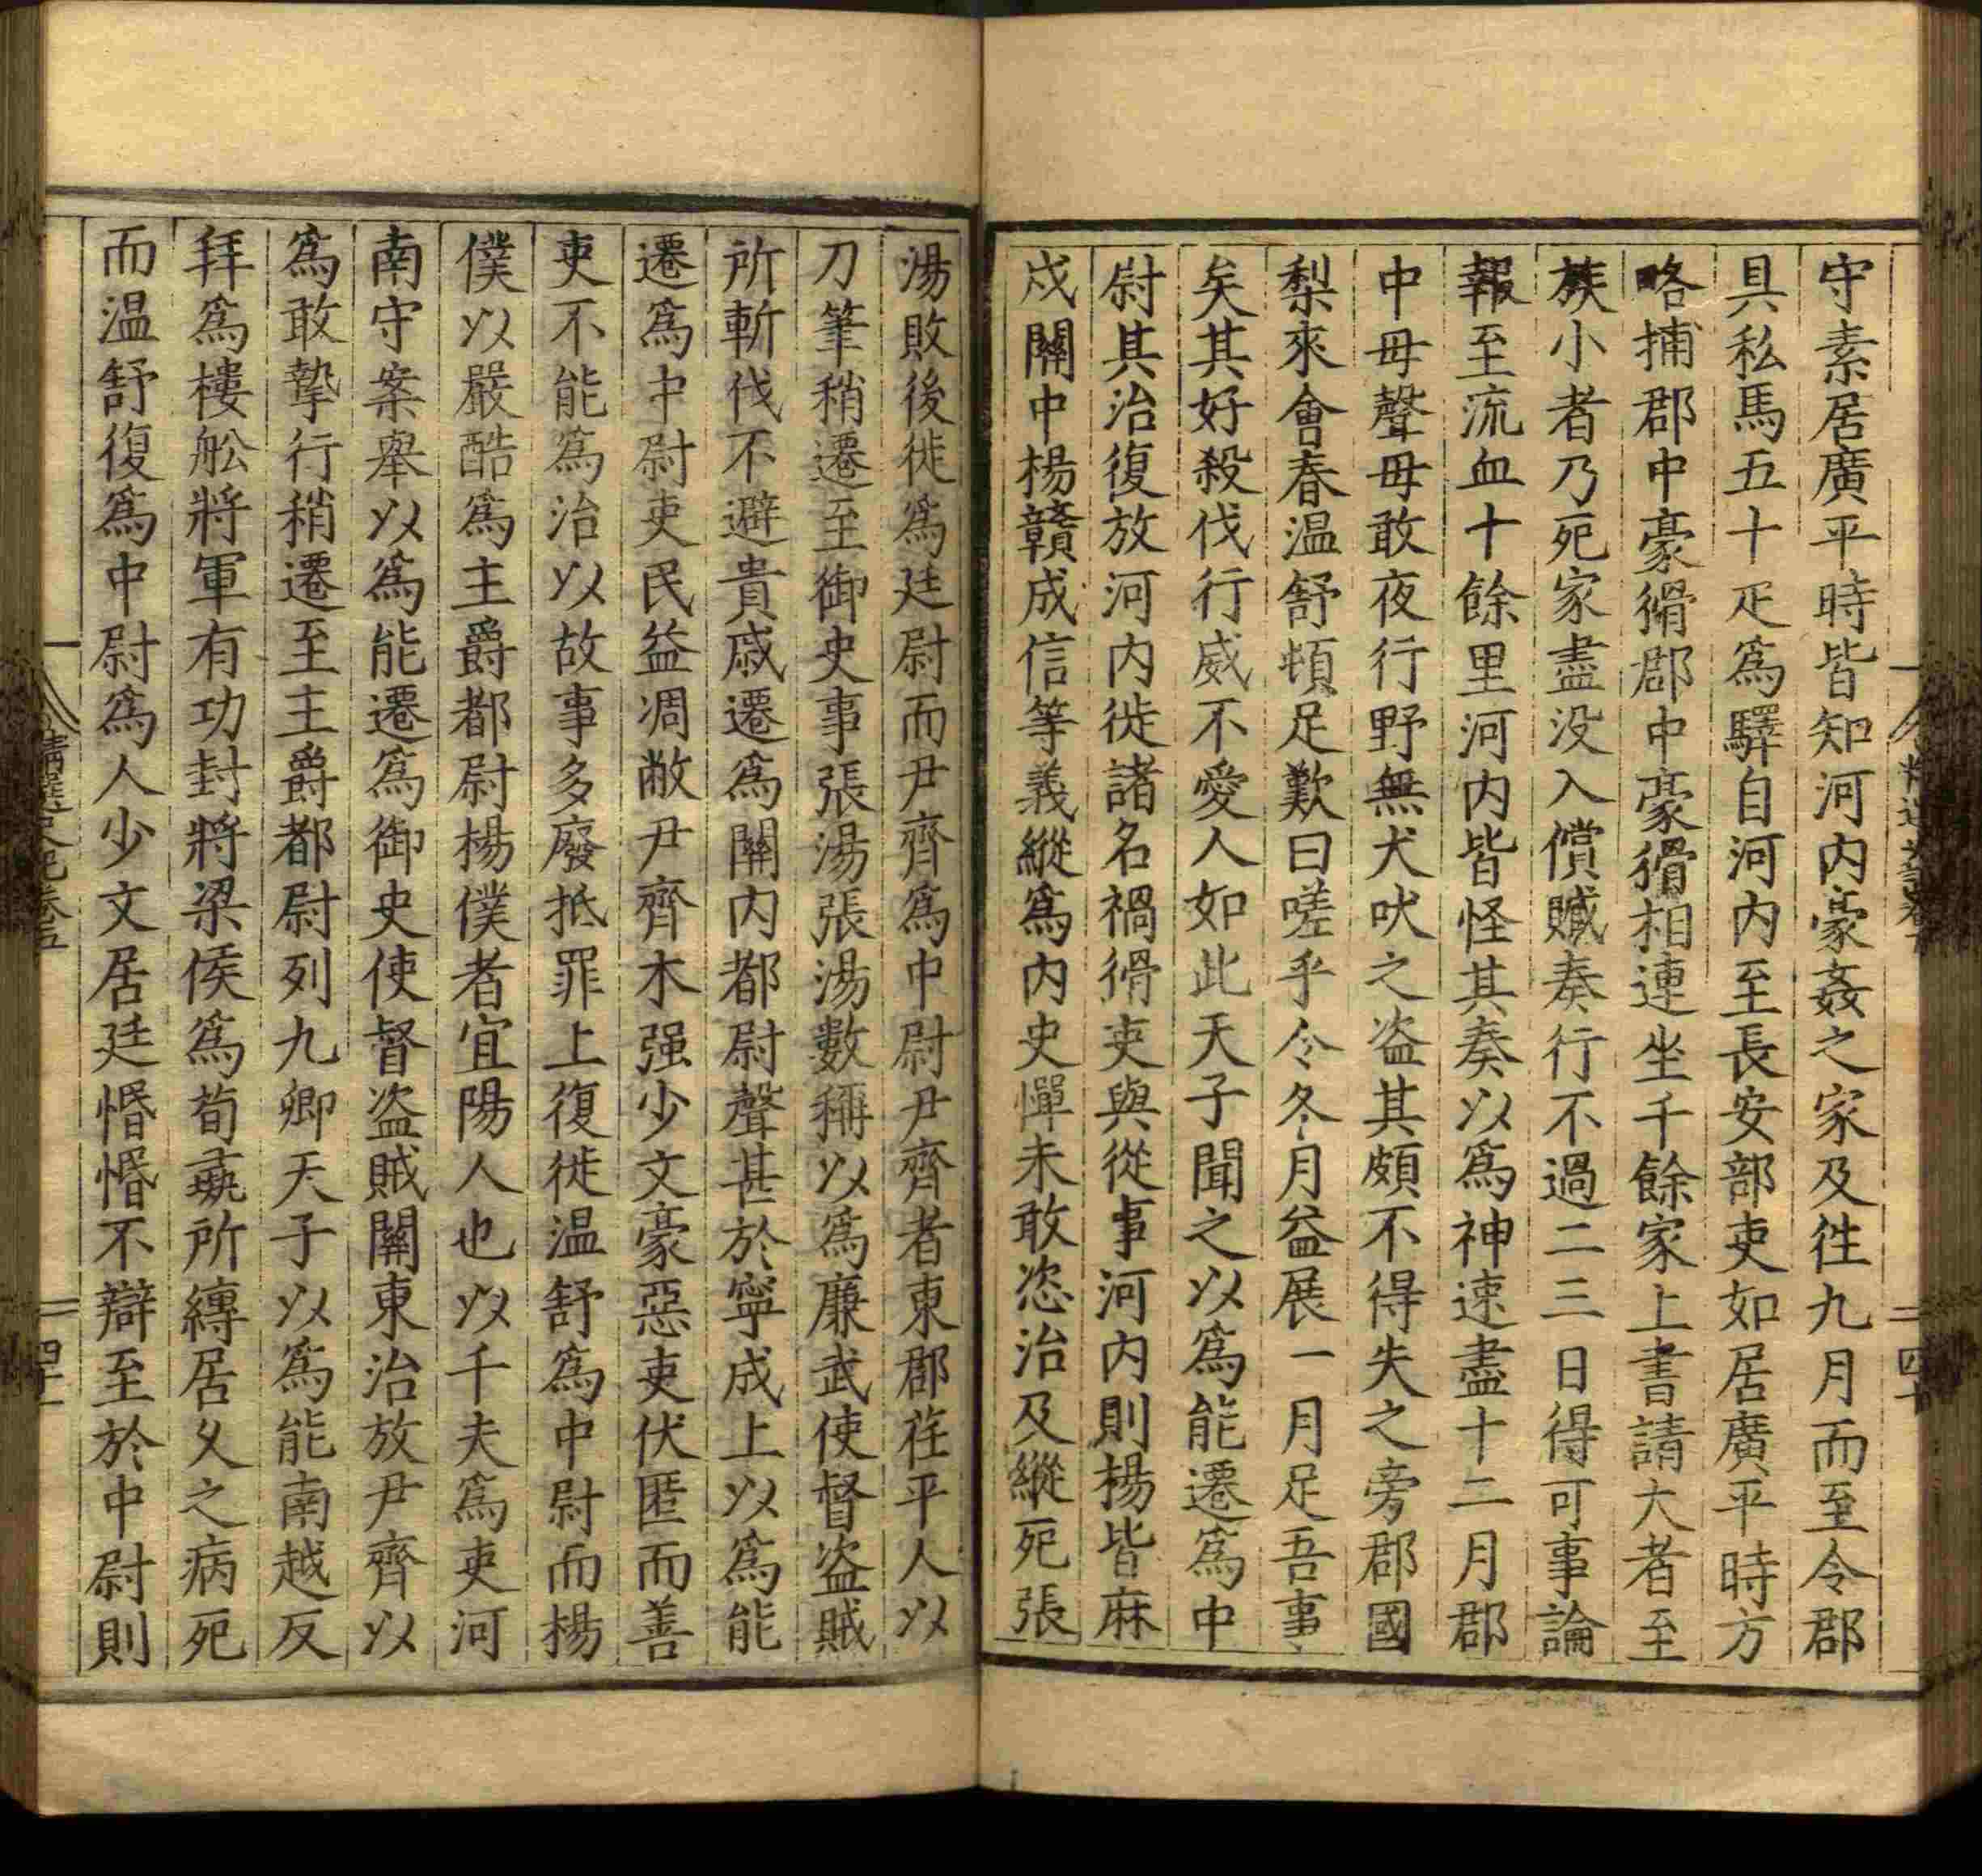 守素居廣平時皆知河内豪姦之家及徃九月而至令郡
具私馬五十疋爲驛自河内至長安部吏如居廣平時方
略捕郡中豪猾郡中豪猾相連坐千餘家上書請大者至
族小者乃死家盡没入償贜奏行不過二三日得可事論
報至流血十餘里河内皆怪其奏以爲神速盡十二月郡
中毋聲毋敢夜行野無犬吠之盗其頗不得失之旁郡國
梨來會春温舒頓足歎曰嗟乎令冬月益展一月足吾事
矣其好殺伐行威不愛人如此天子聞之以爲能遷爲中
尉其治復放河内徙諸名禍猾吏與從事河内則楊皆麻
戍關中楊贛成信等義縱爲内史憚未敢恣治及縱死張
湯敗後徙爲廷尉而尹齊爲中尉尹齊者東郡茌平人以
刀筆稍遷至御史事張湯張湯數稱以爲廉武使督盗賊
所斬伐不避貴戚遷爲關内都尉聲甚於寧成上以爲能
遷爲中尉吏民益凋敝尹齊木强少文豪惡吏伏匿而善
吏不能爲治以故事多廢抵罪上復徙温舒爲中尉而楊
僕以嚴酷爲主爵都尉楊僕者宜陽人也以千夫爲吏河
南守案舉以爲能遷爲御史使督盗賊關東治放尹齊以
爲敢摯行稍遷至主爵都尉列九卿天子以爲能南越反
拜爲樓舩將軍有功封將梁侯爲荀彘所縛居久之病死
而温舒復爲中尉爲人少文居廷惽惽不辯至於中尉則
精選史記卷五
四十一
四十